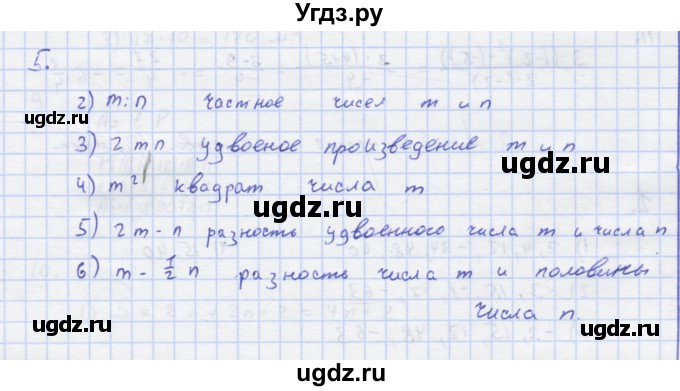 Угдз.ру
5.
2) m:n частное чисел m и n
3) 2mn удвоеное произведение m и n
4) m² квадрат числа m
5) 2m - n разность удвоенного числа m и числа n
6) m - 1/2 n разность числа m и половины
числа n.
ugdz.ru
ugdz.ru
ugdz.ru
ugdz.ru
ugdz.ru
ugdz.ru
ugdz.ru
ugdz.ru
ugdz.ru